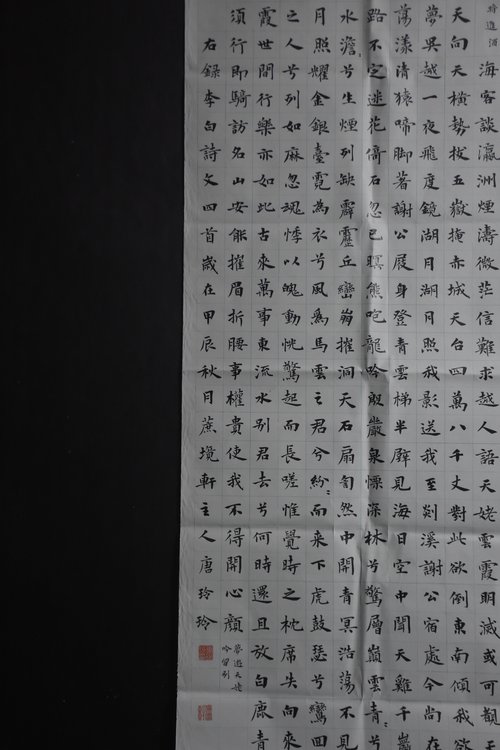 將進酒
海客談瀛洲煙濤微茫信難求越人語天姥雲霞明滅或可覩天
天向天橫勢拔五嶽掩赤城天台四萬八千丈對此欲倒東南傾我欲
夢吳越一夜飛度鏡湖月湖月照我影送我至剡溪謝公宿處今尚在
蕩漾清猿啼脚著謝公屐身登青雲梯半壁見海日空中聞天雞千巖
路不定迷花倚石忽已暝熊咆龍吟殷巖泉慄深林兮驚層巔雲青々兮
水澹々兮生煙列缺霹靂丘巒崩摧洞天石扇訇然中開青冥浩蕩不見
月照耀金銀臺霓為衣兮風為馬雲之君兮紛々而來下虎鼓瑟兮鸞回
之人兮列如麻忽魂悸以魄動怳驚起而長嗟惟覺時之枕席失向來
霞世間行樂亦如此古來萬事東流水別君去兮何時還且放白鹿青
須行即騎訪名山安能摧眉折腰事權貴使我不得開心顏
夢遊天姥
吟留別
右錄李白詩文四首歲在甲辰秋月蔗境軒主人唐玲玲